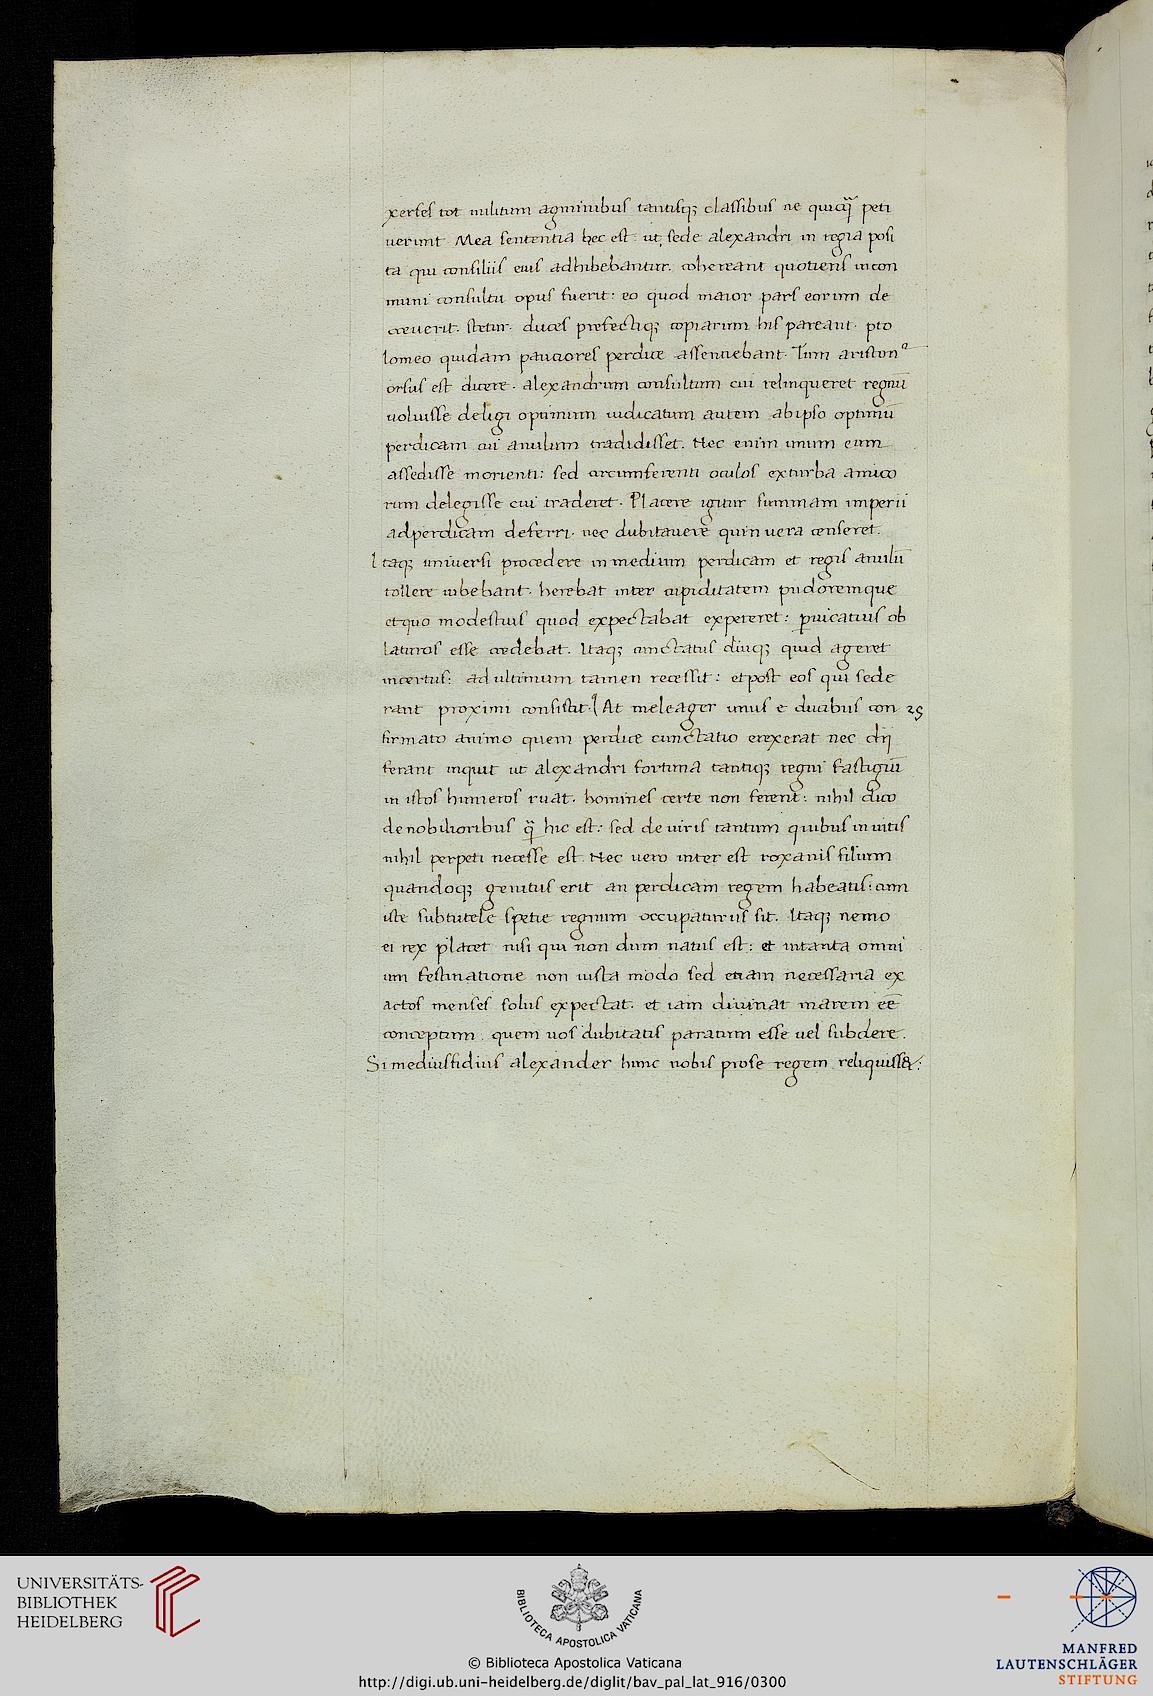 xerses tot militum agminibus tantisq; classibus ne quicq̃ peti
uerint. Mea sententia hec est: ut, sede alexandri in regia posi
ta qui consiliis eius adhibebantur. cohereant quotiens incon
muni consultu opus fuerit: eo quod maior pars eorum de
creuerit. stetur. duces prefectiq; copiarum his pareant. pto
lomeo quidam pauciores perdice assentiebant. Tum aristonᵃ
orsus est dicere. alexandrum consultum cui relinqueret regnū
uoluisse deligi optimum iudicatum autem abipso optimū
perdicam cui anulum tradidisset. Nec enim unum eum
assedisse morienti: sed circumferenti oculos exturba amico
rum delegisse cui traderet. Placere igitur summam imperii
adperdicam deferri. nec dubitauere quin uera censeret.
Itaq; uniuersi procedere in medium perdicam et regis anulū
tollere iubebant. herebat inter cupiditatem pudoremque
etquo modestius quod expectabat expeteret: ꝑuicatius ob
laturos esse credebat. Itaq; cunctatus diuq; quid ageret
incertus: ad ultimum tamen recessit: etpost eos qui sede
rant proximi consistit. At meleager unus e ducibus con 25
firmato animo quem perdice cunctatio erexerat nec dij
ferant inquit ut alexandri fortuna tantiq; regni fastigiū
in istos humeros ruat. homines certe non ferent: nihil dico
denobilioribus q̃ hic est: sed de uiris tantum quibus inuitis
nihil perpeti necesse est. Nec uero inter est roxanis filium
quandoq; genitus erit an perdicam regem habeatis: cum
iste subtutele spetie regnum occupaturus sit. Itaq; nemo
ei rex placet nisi qui non dum natus est: et intanta omni
um festinatione non iusta modo sed etiam necessaria ex
actos menses solus expectat. et iam diuinat marem eē
conceptum. quem uos dubitatis paratum esse uel subdere.
Si mediusfidius alexander hunc nobis prose regem reliquiss&:
UNIVERSITÄTS-
BIBLIOTHEK
HEIDELBERG
BIBLIOTECA APOSTOLICA VATICANA
MANFRED
LAUTENSCHLÄGER
STIFTUNG
© Biblioteca Apostolica Vaticana
http://digi.ub.uni-heidelberg.de/diglit/bav_pal_lat_916/0300